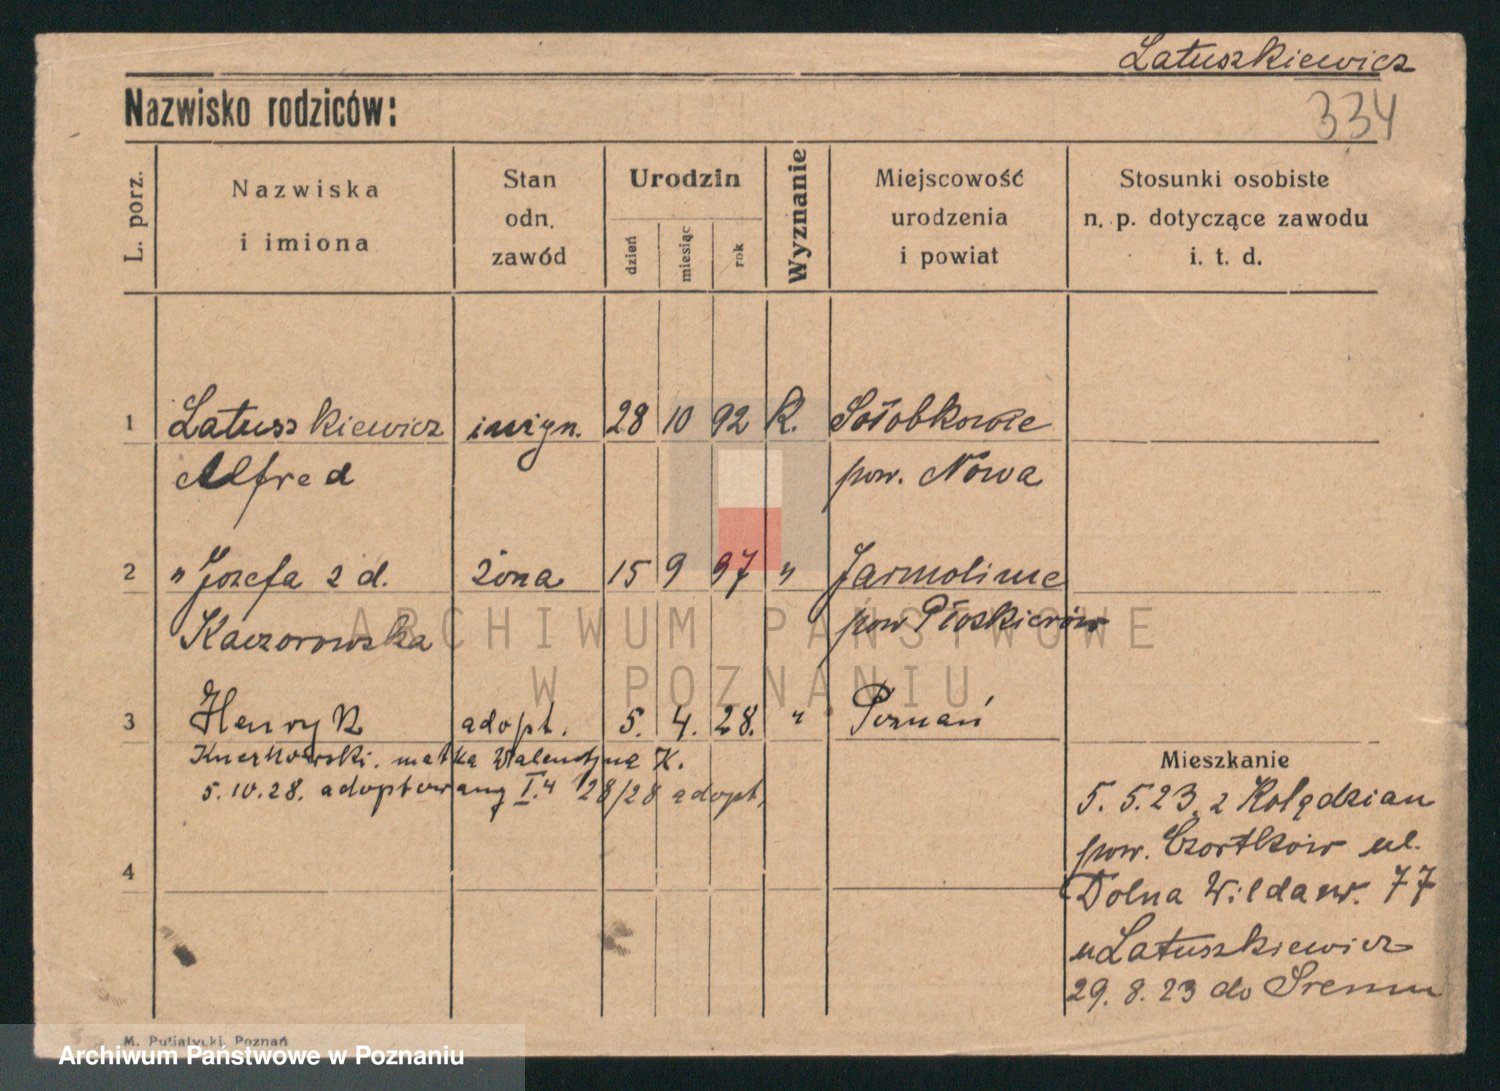 Latuszkiewicz
Nazwisko rodziców:
334
L. porz.
Nazwiska
i imiona
Stan
odn.
zawód
Urodzin
dzień
miesiąc
rok
Wyznanie
Miejscowość
urodzenia
i powiat
Stosunki osobiste
n. p. dotyczące zawodu
i. t. d.
1 Latuszkiewicz 28 10 92 K. Sołobkowce
Alfred pow. Nowa
2 " Józefa z d. żona 15 9 97 " Jarmolince
Kaczorowska pow Płoskirów
3 Henryk adopt. 5. 4. 28. " Poznań
matka Walentyna K.
5.10.28. adoptowany 28/28 adopt.
4
Mieszkanie
5. 5. 23. z Kolędzian
pow. Czortków ul.
Dolna Wilda nr. 77
u Latuszkiewicz
29. 8. 23 do Śremu
ARCHIWUM PAŃSTWOWE
W POZNANIU
M. Putiatycki, Poznań
Archiwum Państwowe w Poznaniu